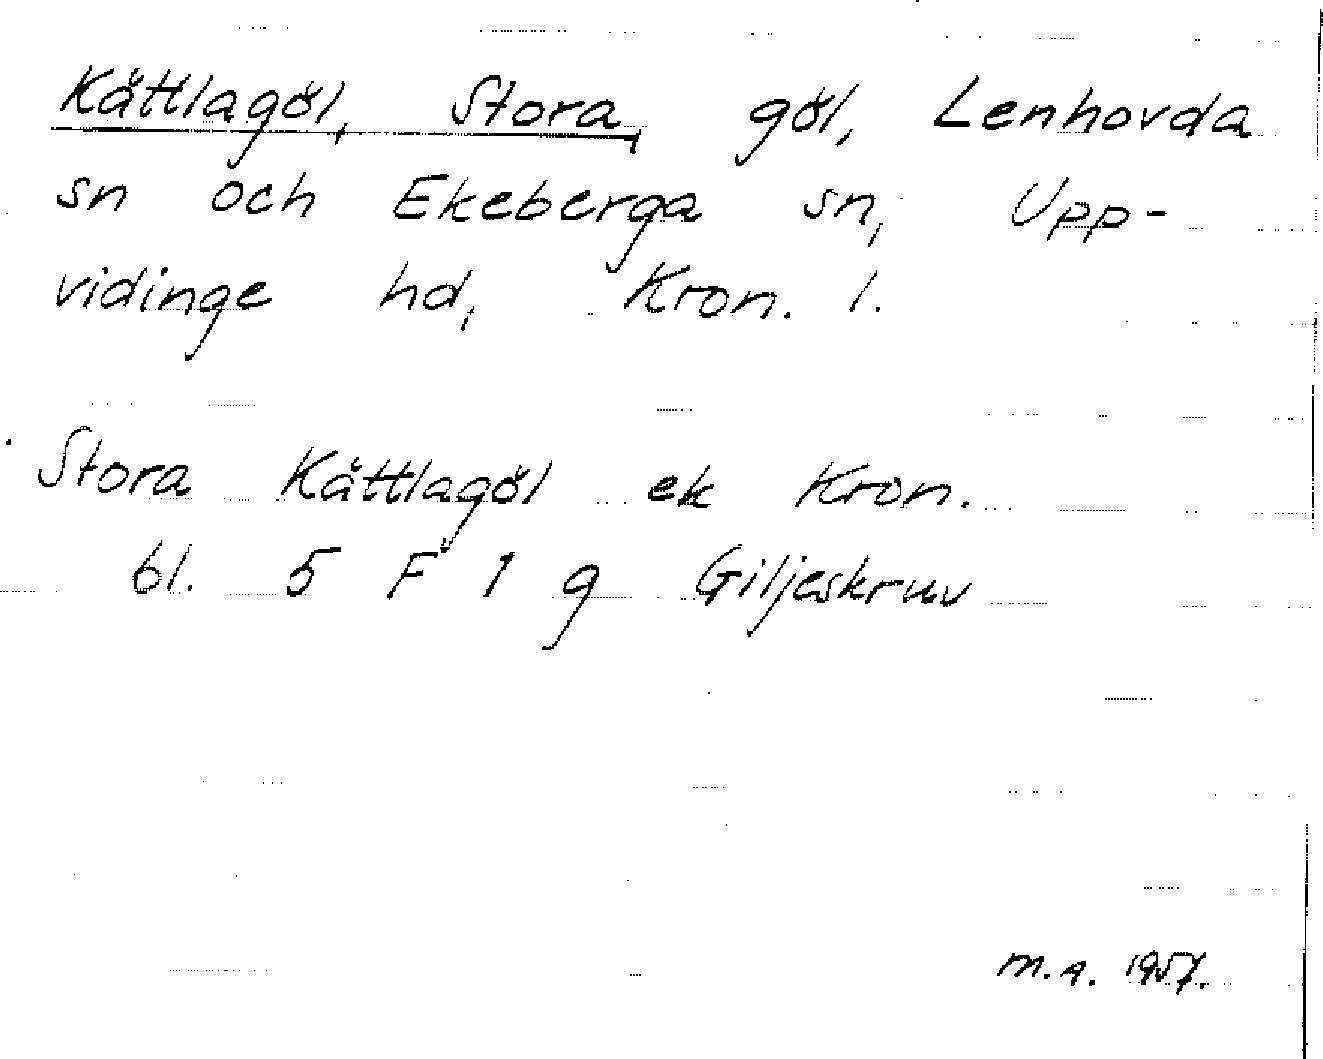 Kåttlagöl, Stora, göl, Lenhovda
sn och Ekeberga sn, Upp-
vidinge hd, Kron. l.
Stora Kåttlagöl ek Kron.
bl. 5 F 1 g Giljeskruv
m.a. 1957.